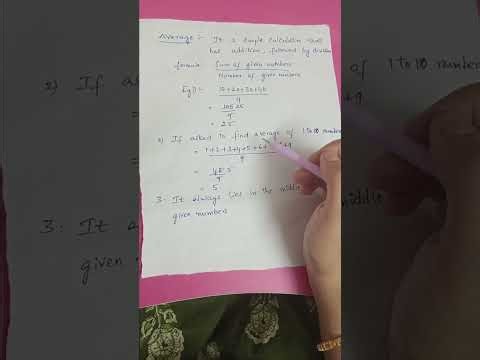 Average :- It is simple calculation that
has addition, followed by division
formula: Sum of given numbers
Number of given numbers
Eg 1) :- 10+20+30+40
4
= 100 25
4
= 25
2) If asked to find average of 1 to 10 numbers
= 1+2+3+4+5+6+ +9
9
= 45 5
9
= 5
3. It always lies in the middle
given numbers